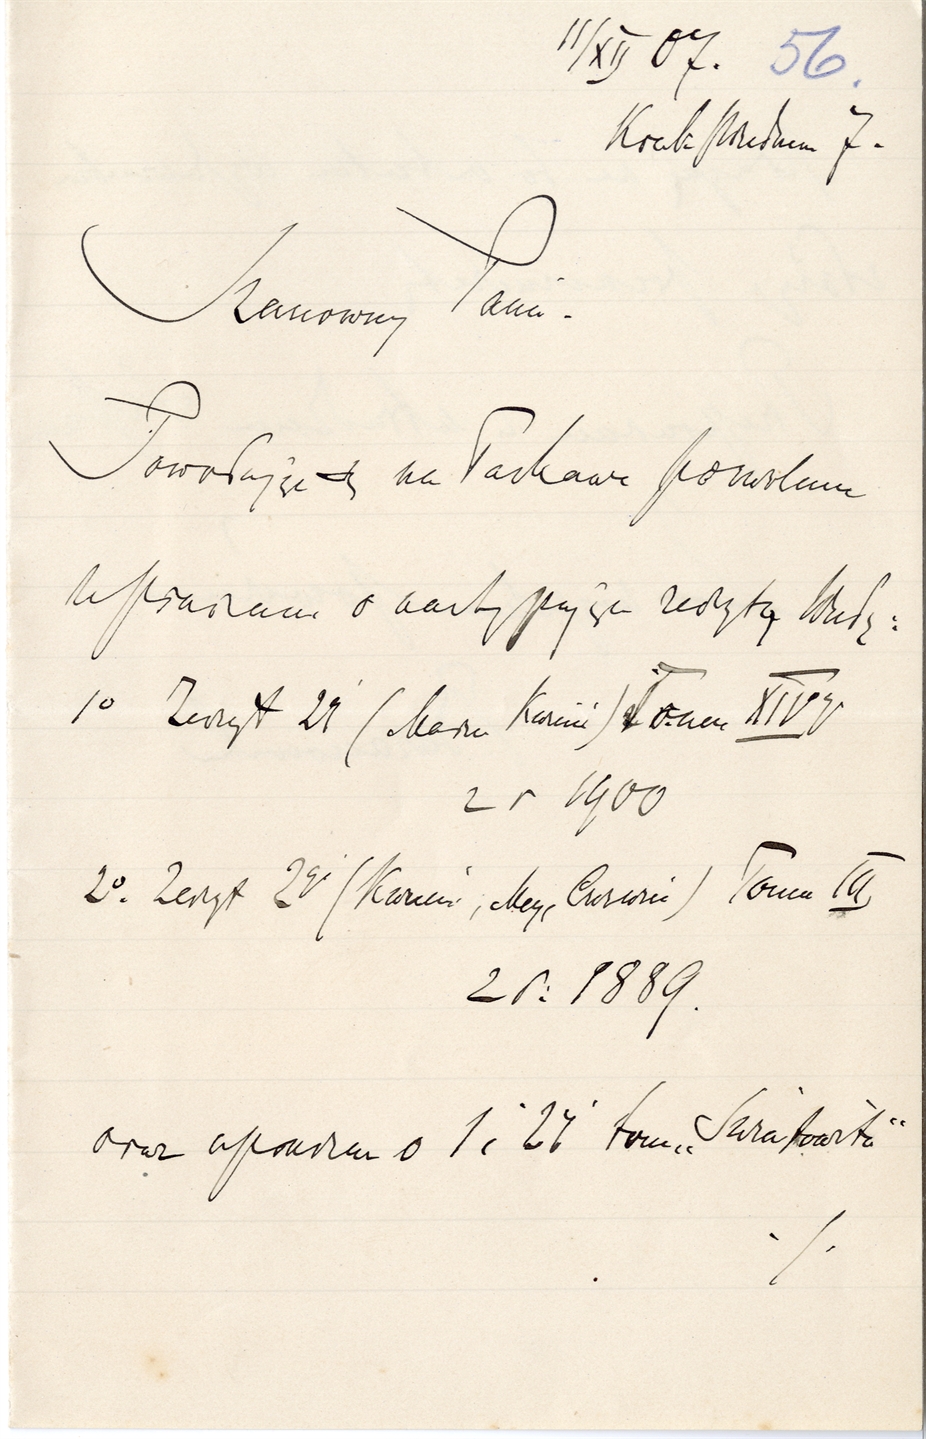 11/XII 07. 56.
Krak. Przedm. 7.
Szanowny Panie.
Powołując się na łaskawe pozwolenie
upraszam o następujące zeszyty Wisły:
1º Zeszyt 2gi (Marzec Kwiec) Tomu XIVgo
z r 1900
2º. Zeszyt 2gi (Kwiec, Maj, Czerwiec) Tomu III
z r: 1889.
oraz upraszam o 1 i 2gi tom „Światowita"
./.